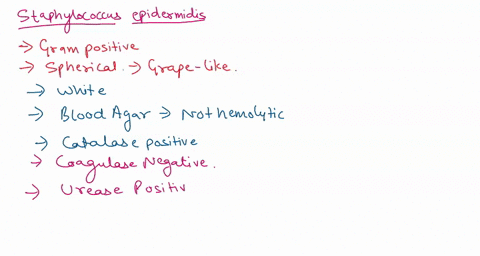 Staphylococcus epidermidis
→ Gram positive
→ Spherical → Grape-like.
→ White
→ Blood Agar → Not hemolytic
→ Catalase positive
→ Coagulase Negative.
→ Urease Positiv